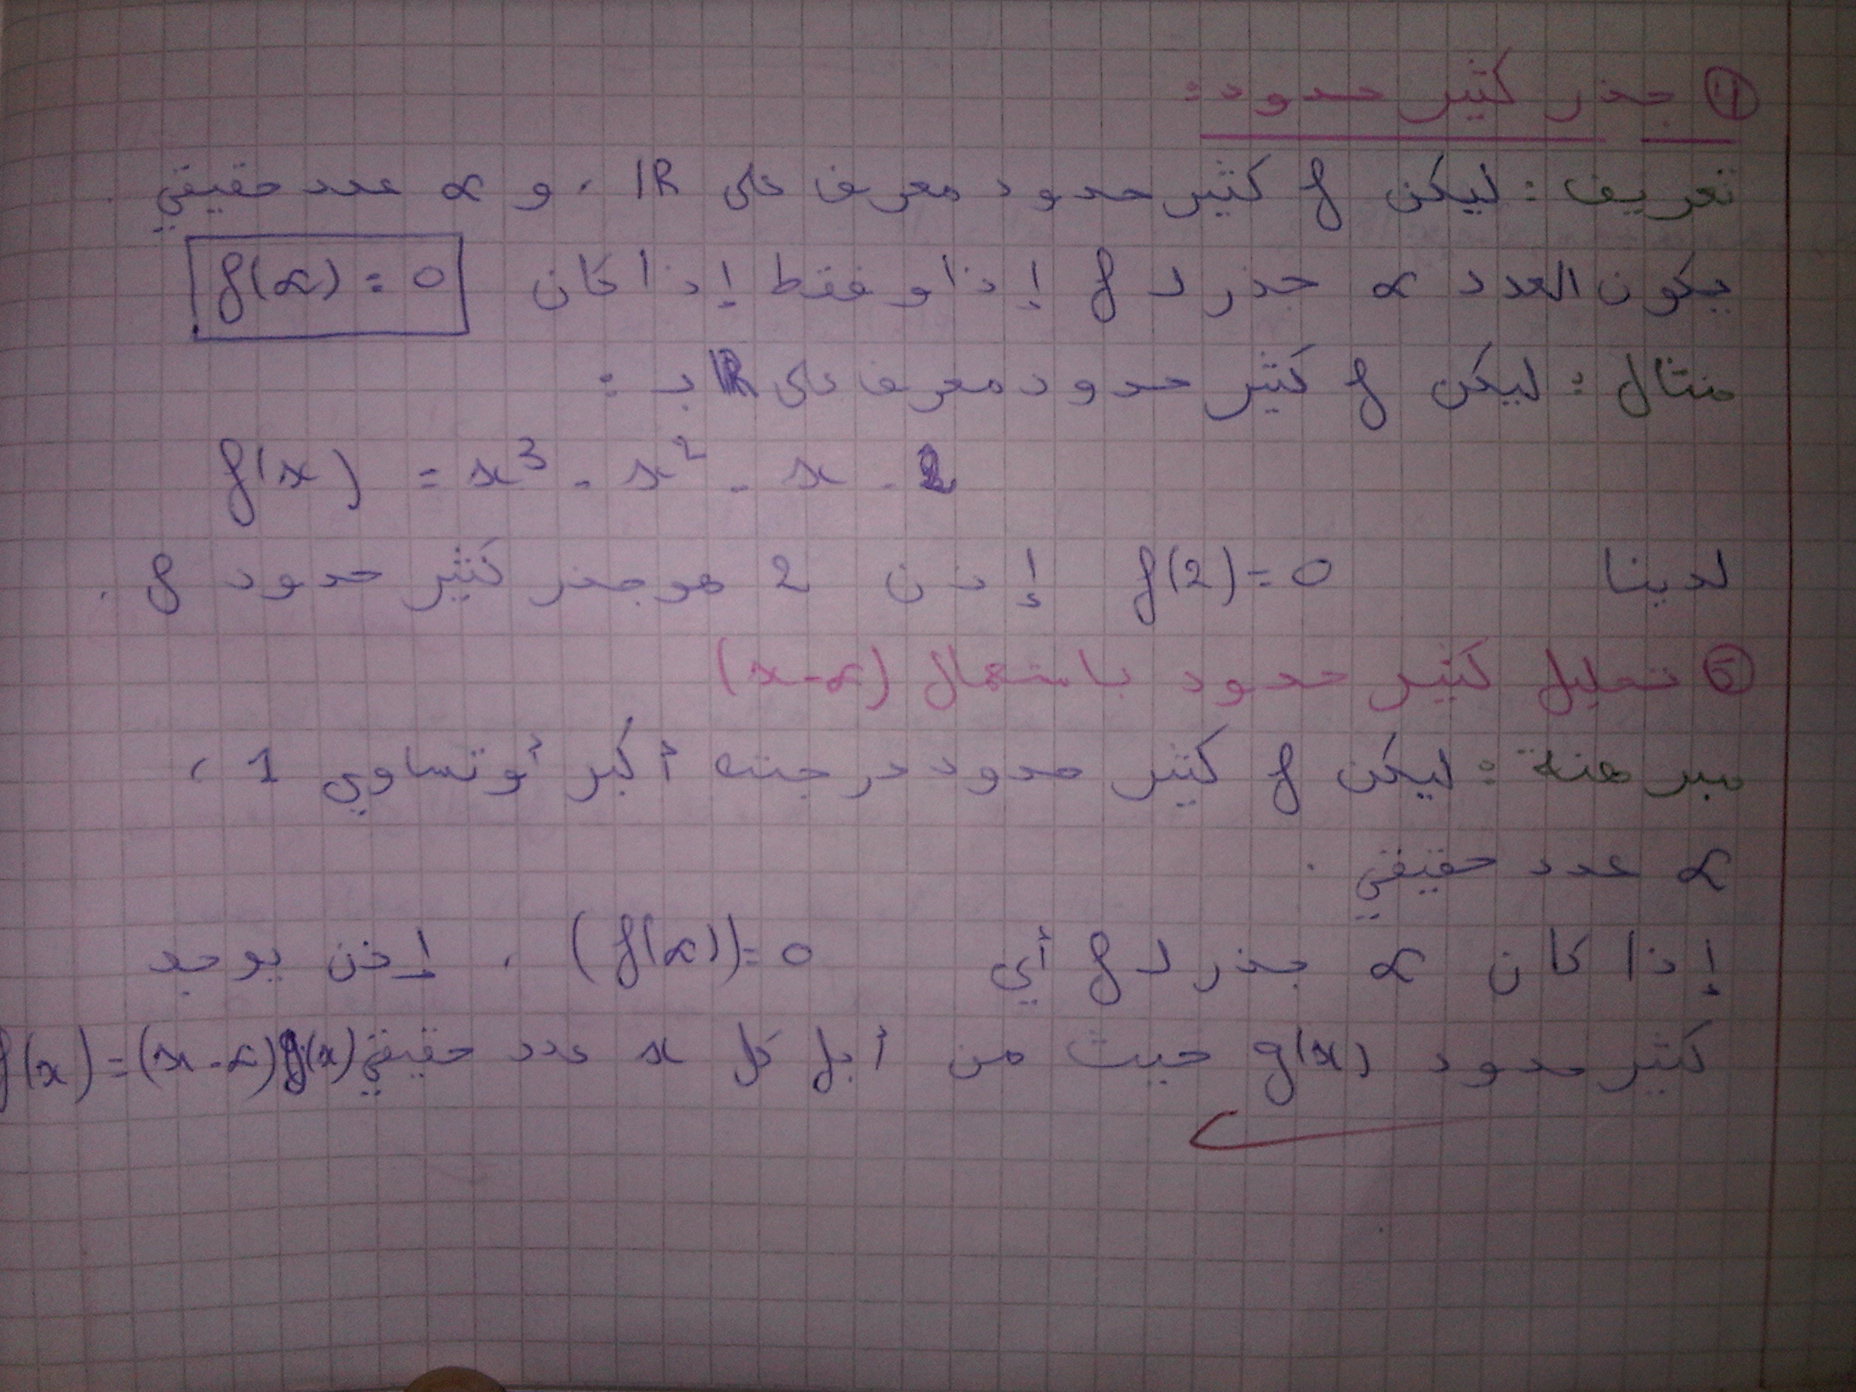 ④ جذر كثير حدود :
تعريف : ليكن f كثير حدود معرف على IR ، و α عدد حقيقي .
يكون العدد α جذر لـ f إذا وفقط إذا كان f(α) = 0
مثال : ليكن f كثير حدود معرف على IR بـ :
f(x) = x³ - x² - x - 2
لدينا f(2) = 0 إذن 2 هو جذر كثير حدود f .
⑤ تحليل كثير حدود باستعمال (x-α)
مبرهنة : ليكن f كثير حدود درجته أكبر أو تساوي 1 ،
α عدد حقيقي .
إذا كان α جذر لـ f أي (f(α)) = 0 ، إذن يوجد
كثير حدود g(x) حيث من أجل كل x عدد حقيقي f(x) = (x-α)g(x)